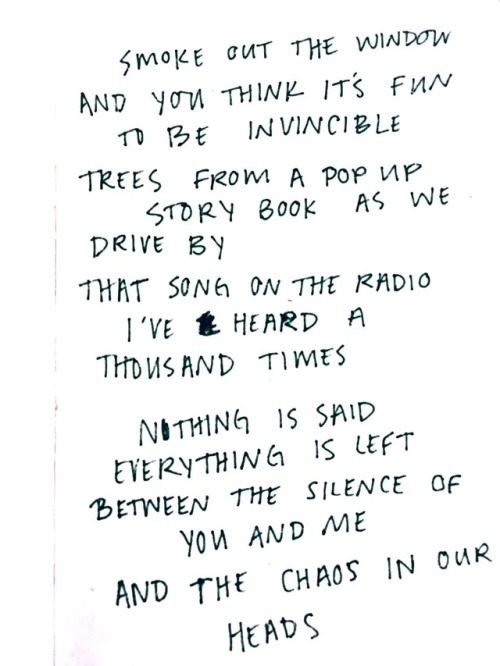 SMOKE OUT THE WINDOW
AND YOU THINK IT'S FUN
TO BE INVINCIBLE
TREES FROM A POP UP
STORY BOOK AS WE
DRIVE BY
THAT SONG ON THE RADIO
I'VE HEARD A
THOUSAND TIMES
NOTHING IS SAID
EVERYTHING IS LEFT
BETWEEN THE SILENCE OF
YOU AND ME
AND THE CHAOS IN OUR
HEADS